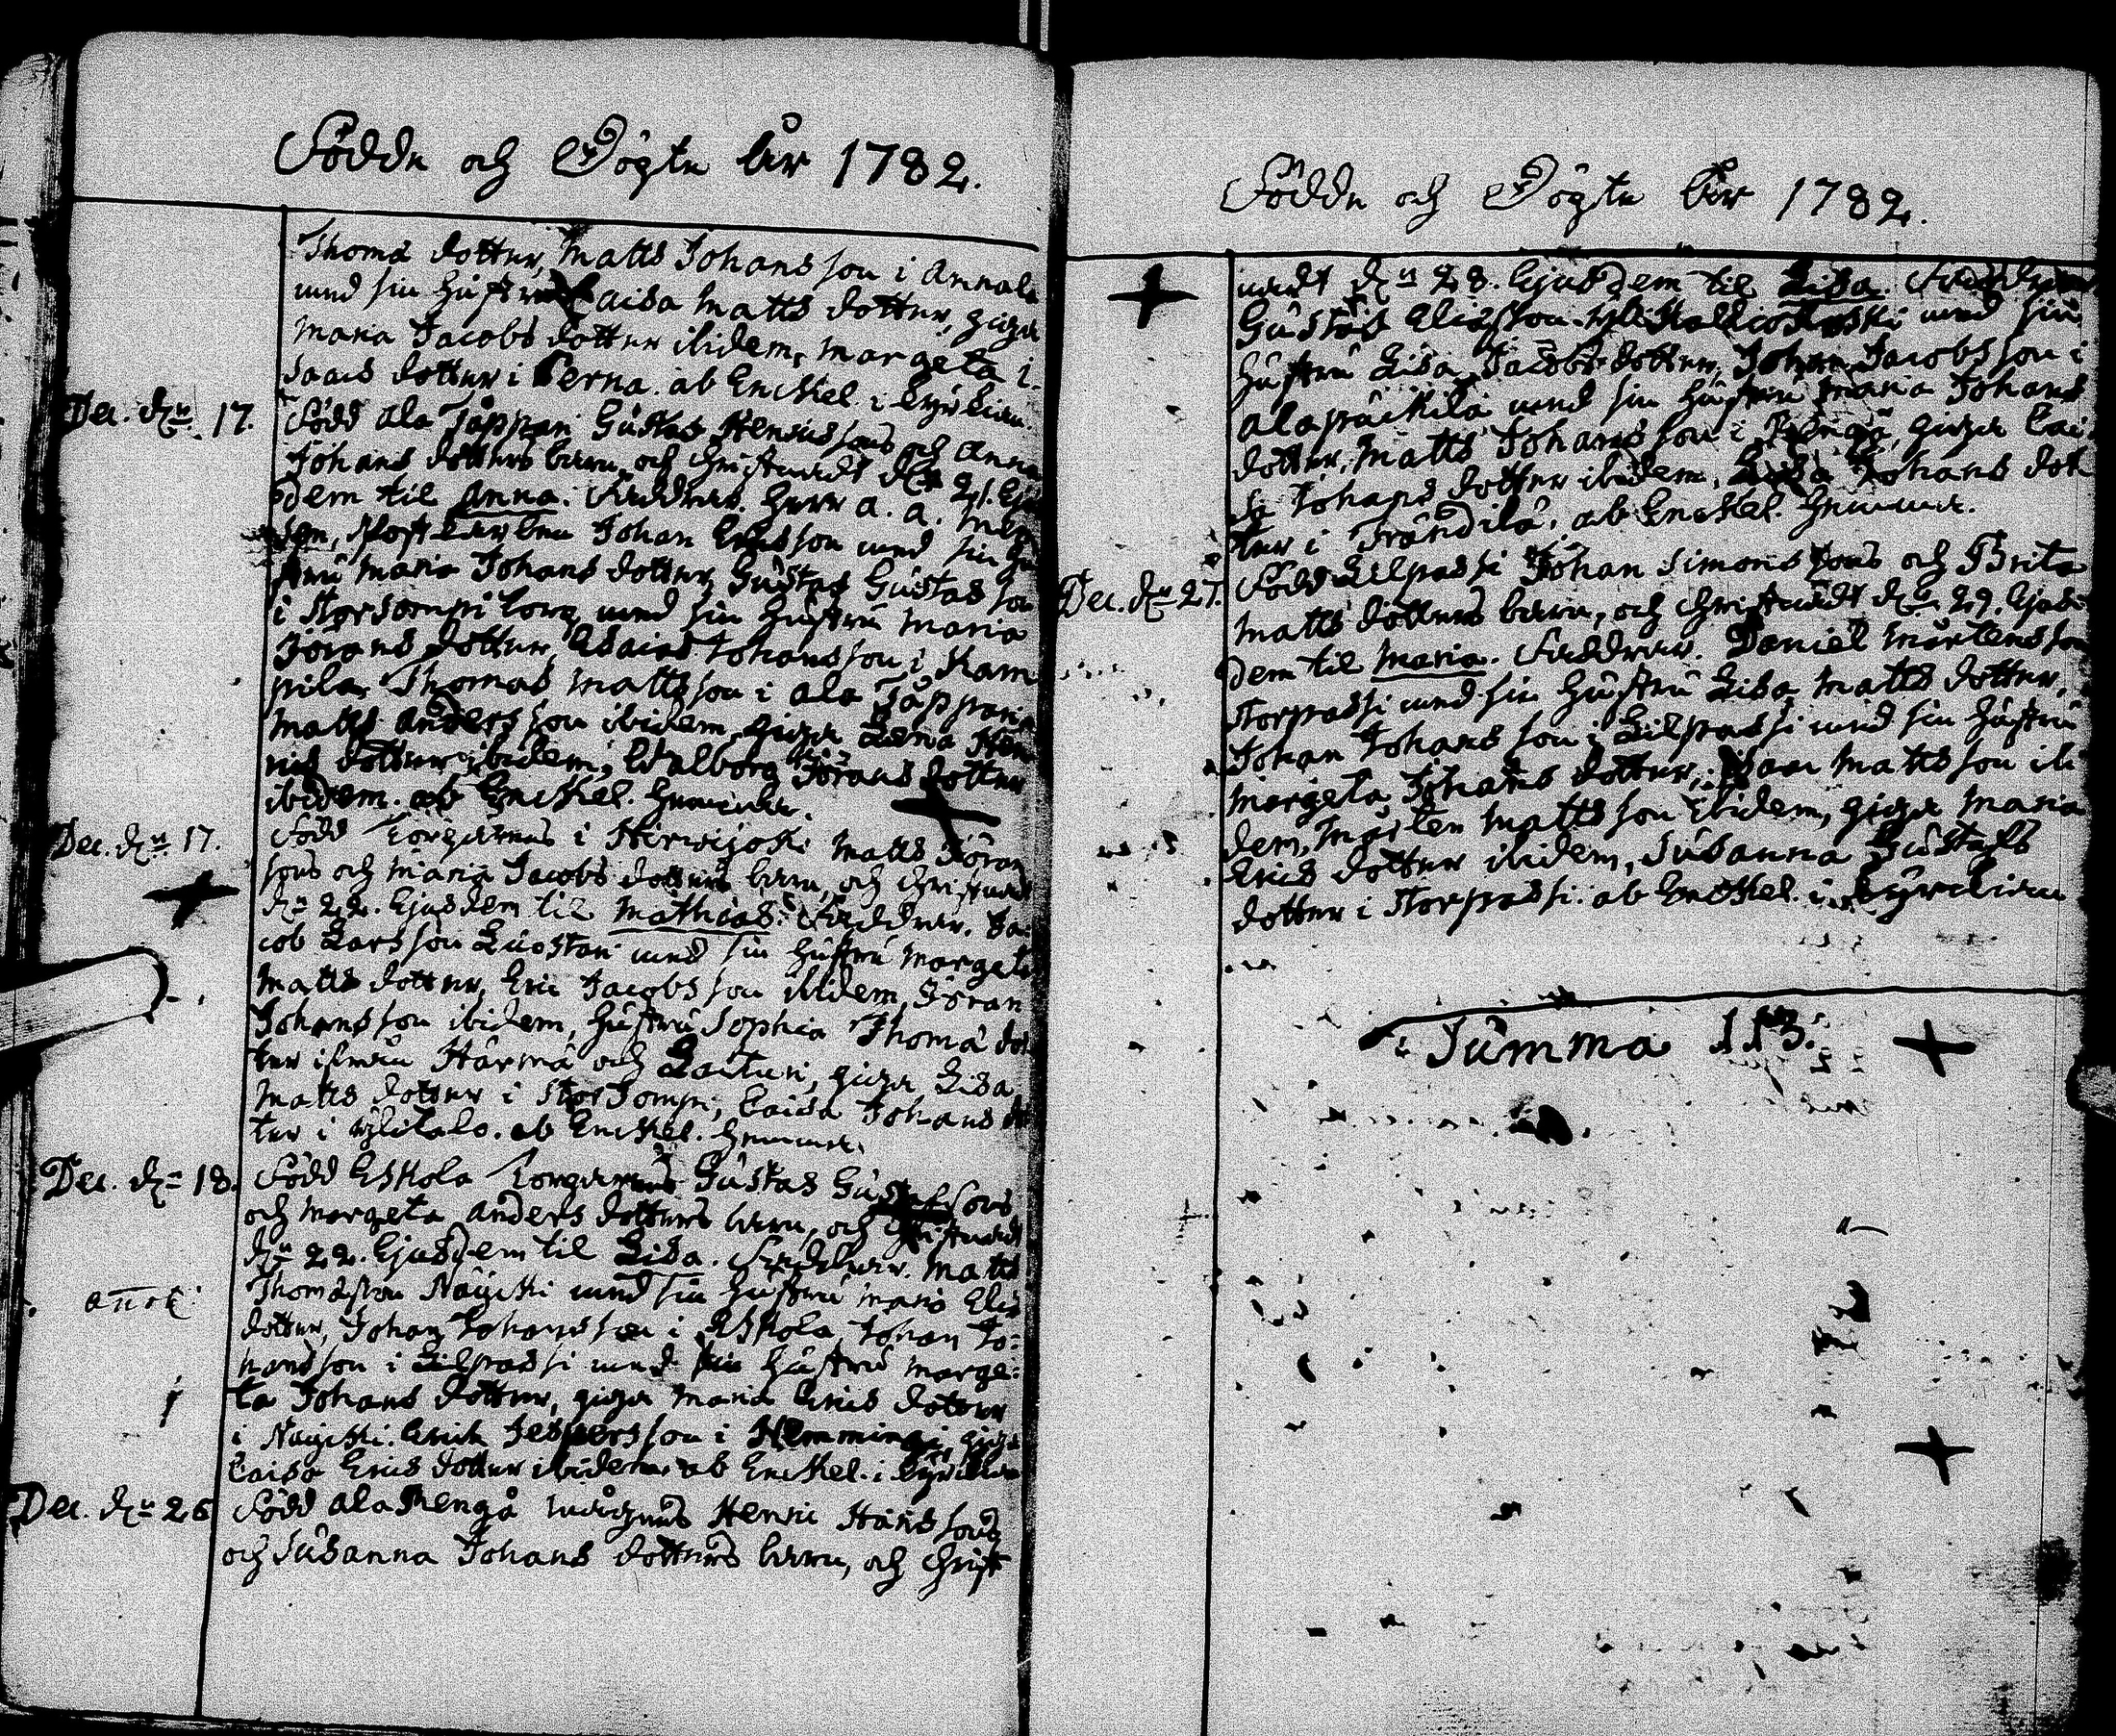 Födde och Döpte År 1782.
Thoma dotter, Matts Johansson i Annala
med sin hustru Caisa Matts dotter, piga
Maria Jacobs dotter ibidem, Margeta I-
saacs dotter i Perna. ab Enckel. i Kyrkian.
Dec. d. 17. Född Ala Jäppari Gustas Henricssons och Anna
Johans dotters barn, och christnadt d. 21. Ejus
dem til Anna. Faddrar. Herr A. A.
Johan Ericsson med sin hu
stru Maria Johans dotter, Gustas Gustas son
i Storsompi med sin hustru Maria
Jörans dotter, Esaias Johansson i Kam
pila, Thomas Mattsson i Ala Jäppari,
Matts Andersson ibidem, piga Lena Hen
rics dotter ibidem, Walborg Jörans dotter
ibidem. ab Enckel. hemma.
Dec. d. 17. Född i Hirvijoki Matts Jöran
sons och Maria Jacobs dotters barn, och christnadt
d. 22. Ejusdem til Mathias. Faddrar. Ja-
cob Larsson med sin hustru Margeta
Matts dotter, Eric Jacobsson ibidem, Jöran
Johansson ibidem, hustru Sophia Thoma dot
ter ifrån och piga Lisa
Matts dotter i StorSompi, Caisa Johans dot
ter i Ylitalo. ab Enckel. hemma.
Dec. d. 18. Född Eskola Gustas Gustafsons
och Margeta Anders dotters barn, och christnadt
d. 22. Ejusdem til Lisa. Faddrar. Matts
Thomasson Näycki med sin hustru Maria Elis
dotter, Johan Johansson i Eskola, Johan Jo-
hansson i Lilpassi med sin hustru Marge-
ta Johans dotter, piga Maria Erics dotter
i Näycki. Erich Jespersson i Hemmingi, piga
Caisa Erics dotter ibidem. ab Enckel. i Kyrkian
Dec. d. 26 Född Ala Henric Hanssons
och Susanna Johans dotters barn, och christ
Födde och Döpte År 1782.
nadt d. 28. Ejusdem til Lisa. Faddrar
Gustas Eliasson med sin
hustru Lisa Jacobs dotter, Johan Jacobsson i
Ala med sin hustru Maria Johans
dotter, Matts Johansson i piga Cai
sa Johans dotter ibidem, Lisa Johans dot
ter i Frändilä. ab Enckel. hemma.
Dec. d. 27. Född Lilpassi Johan Simonssons och Brita
Matts dotters barn, och christnadt d. 29. Ejus
dem til Maria. Faddrar. Daniel Mårtensson
Storpassi med sin hustru Lisa Matts dotter,
Johan Johansson i Lilpassi med sin hustru
Margeta Johans dotter, Isaac Mattsson ibi
dem, Mårten Mattsson ibidem, piga Maria
Erics dotter ibidem, Susanna Gustafs
dotter i Storpassi. ab Enckel. i Kyrckian
Summa 113.